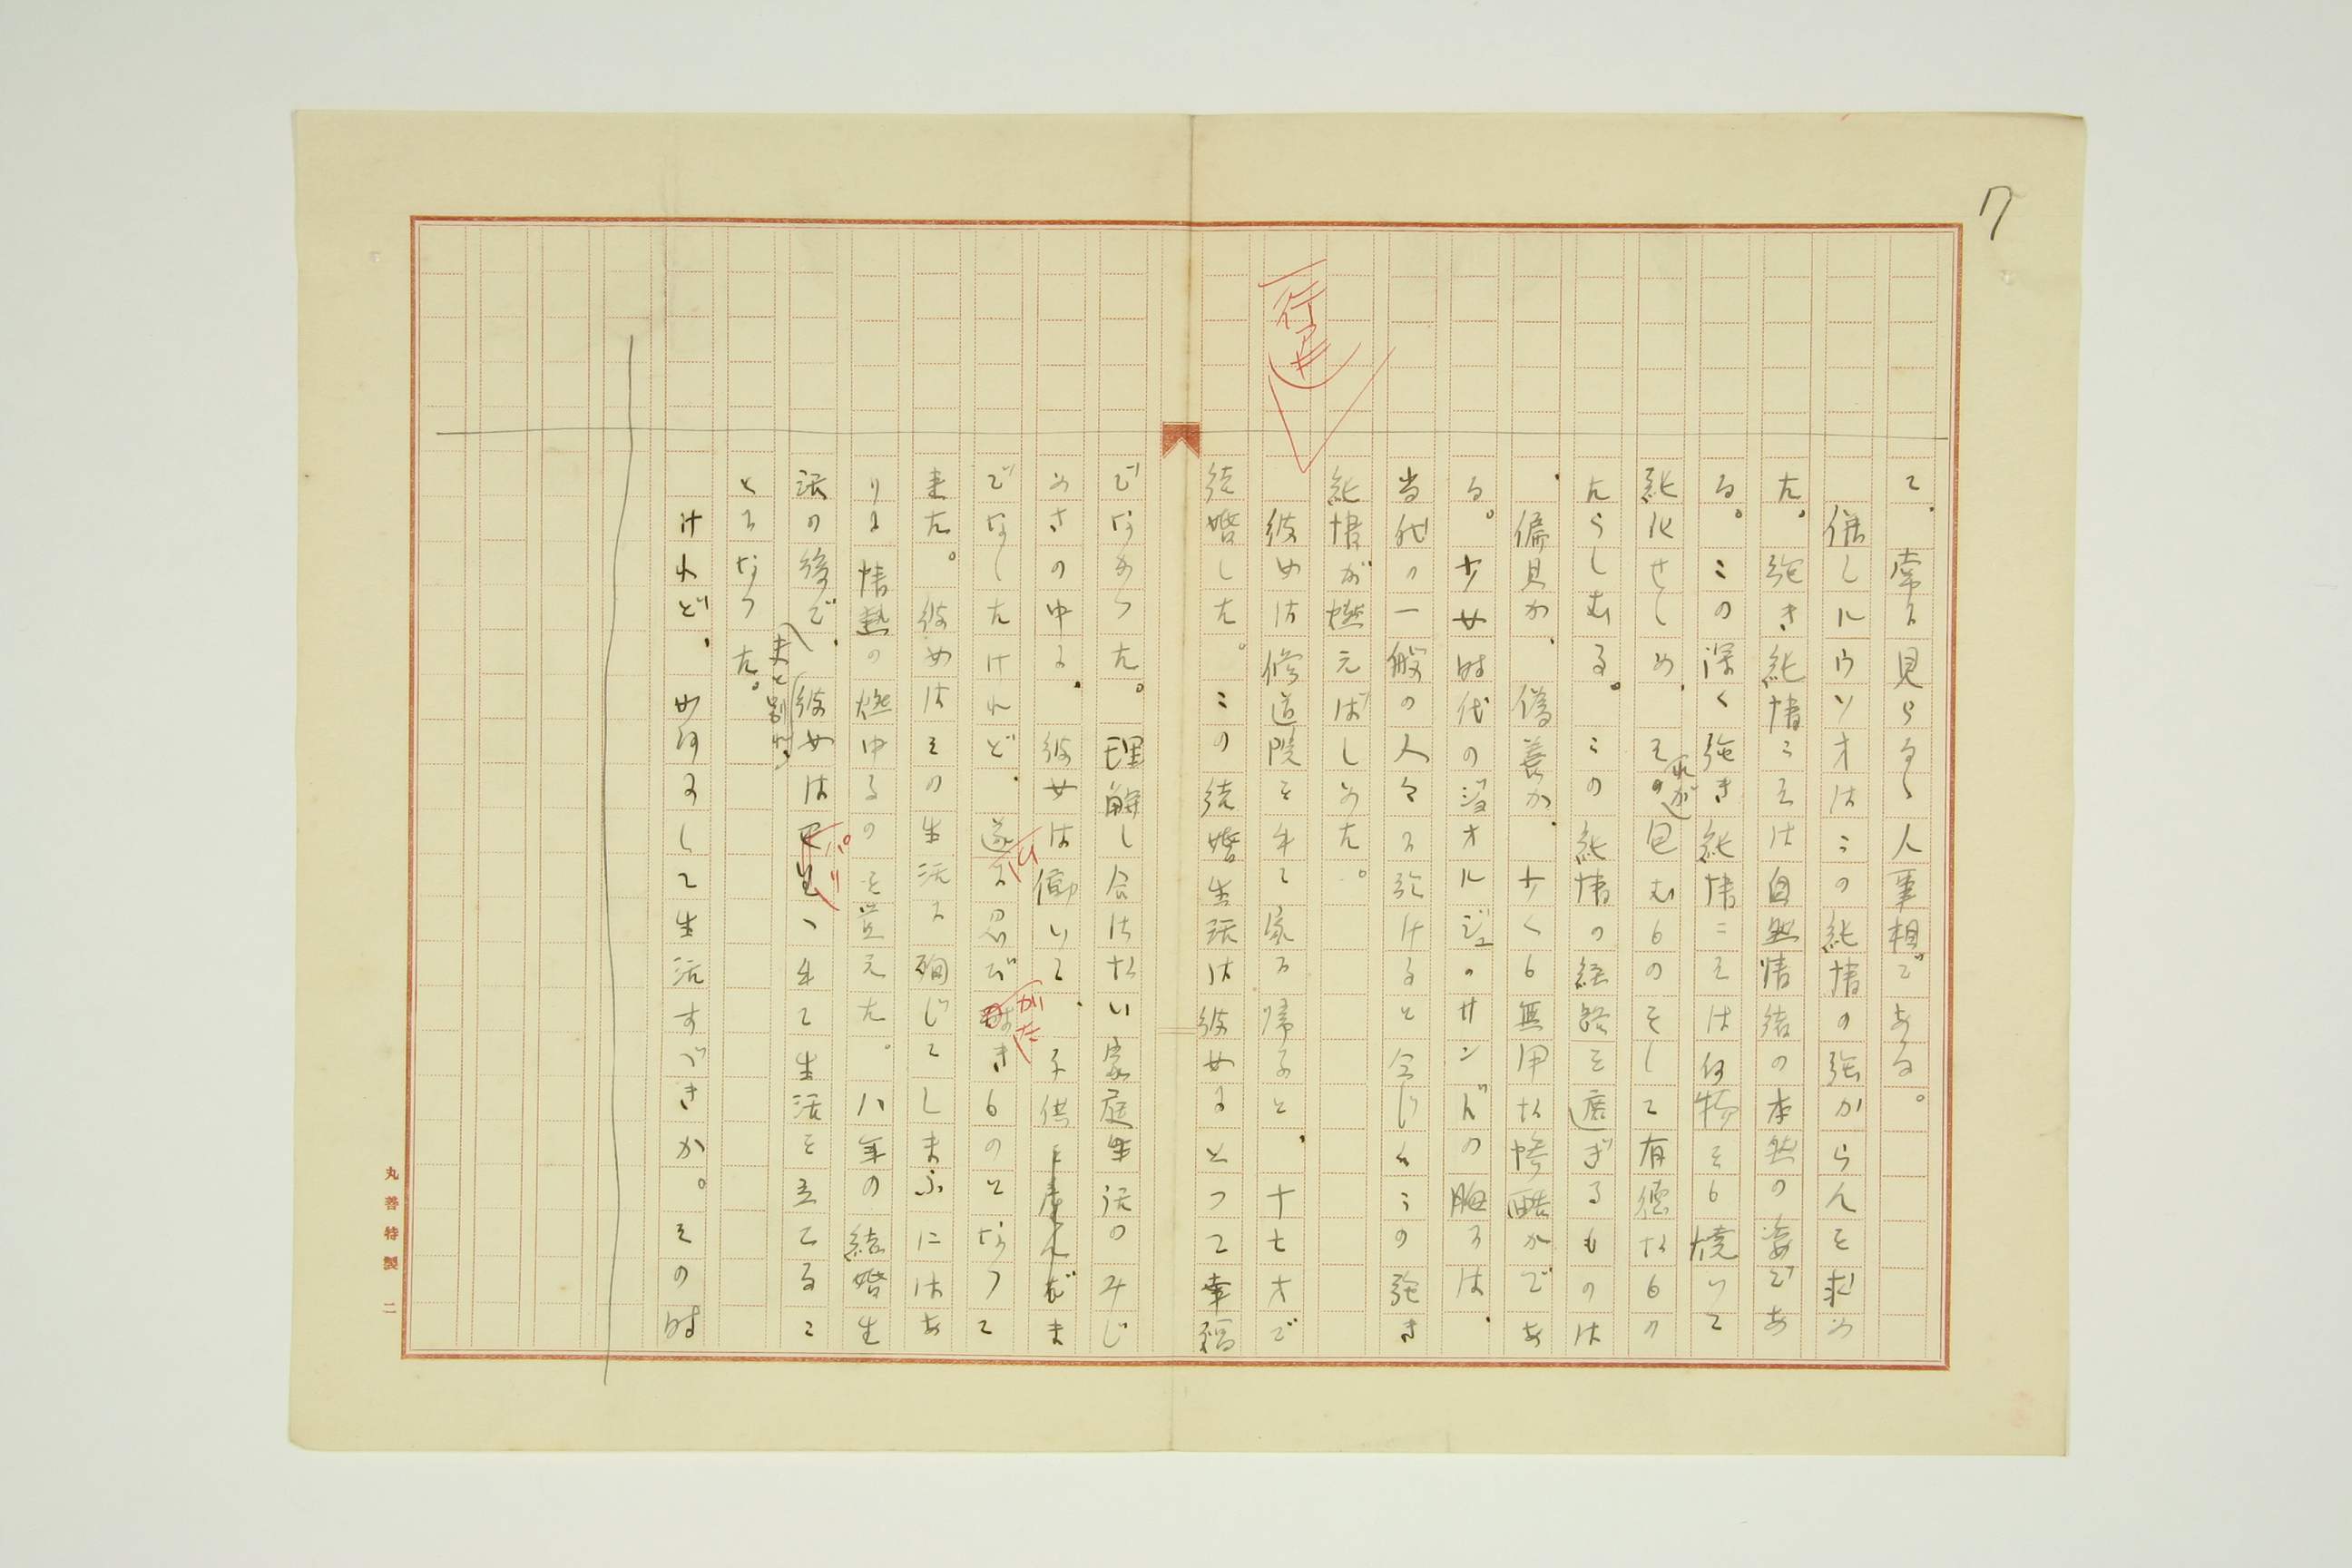 7
て、常に見らるゝ人事相である。
併しルウソオはこの純情の強からんを求め
た。強き純情こそは自然情緒の本然の姿であ
る。この深く強き純情こそは何物をも焼いて
純化せしめ、それが包むものをして有徳なもの
たらしむる。この純情の経路を遮ぎるものは
、偏見か、偽善か、少くも無用な惨酷かであ
る。少女時代のジヨオルジユ・サンドの胸には、
当代の一般の人々に於けると全じくこの強き
純情が燃えばしめた。
行アキ
彼女は修道院を出て家に帰ると、十七才で
結婚した。この結婚生活は彼女にとつて幸福
でなかつた。理解し合はない家庭生活のみじ
めさの中に、彼女は働いて、子供を産んだま
でなしたけれど、遂に忍びがたきものとなつて
来た。彼女はその生活に殉じてしまふにはあ
りに情熱の燃ゆるのを覚えた。八年の結婚生
活の後で、夫と別れ、彼女はパリへ出て生活を立てるこ
とになつた。
けれど、如何にして生活すべきか。その時
丸善特製 二